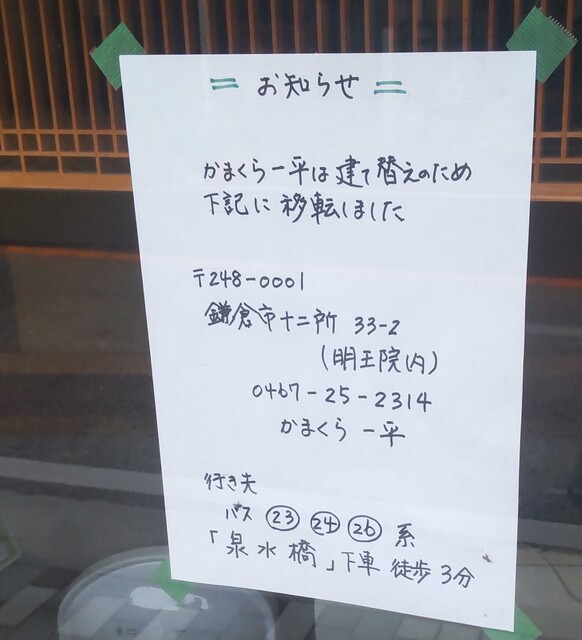 = お知らせ =
かまくら一平は建て替えのため
下記に移転しました
〒248-0001
鎌倉市十二所 33-2
(明王院内)
0467-25-2314
かまくら一平
行き先
バス ㉓ ㉔ ㉖ 系
「泉水橋」下車 徒歩3分